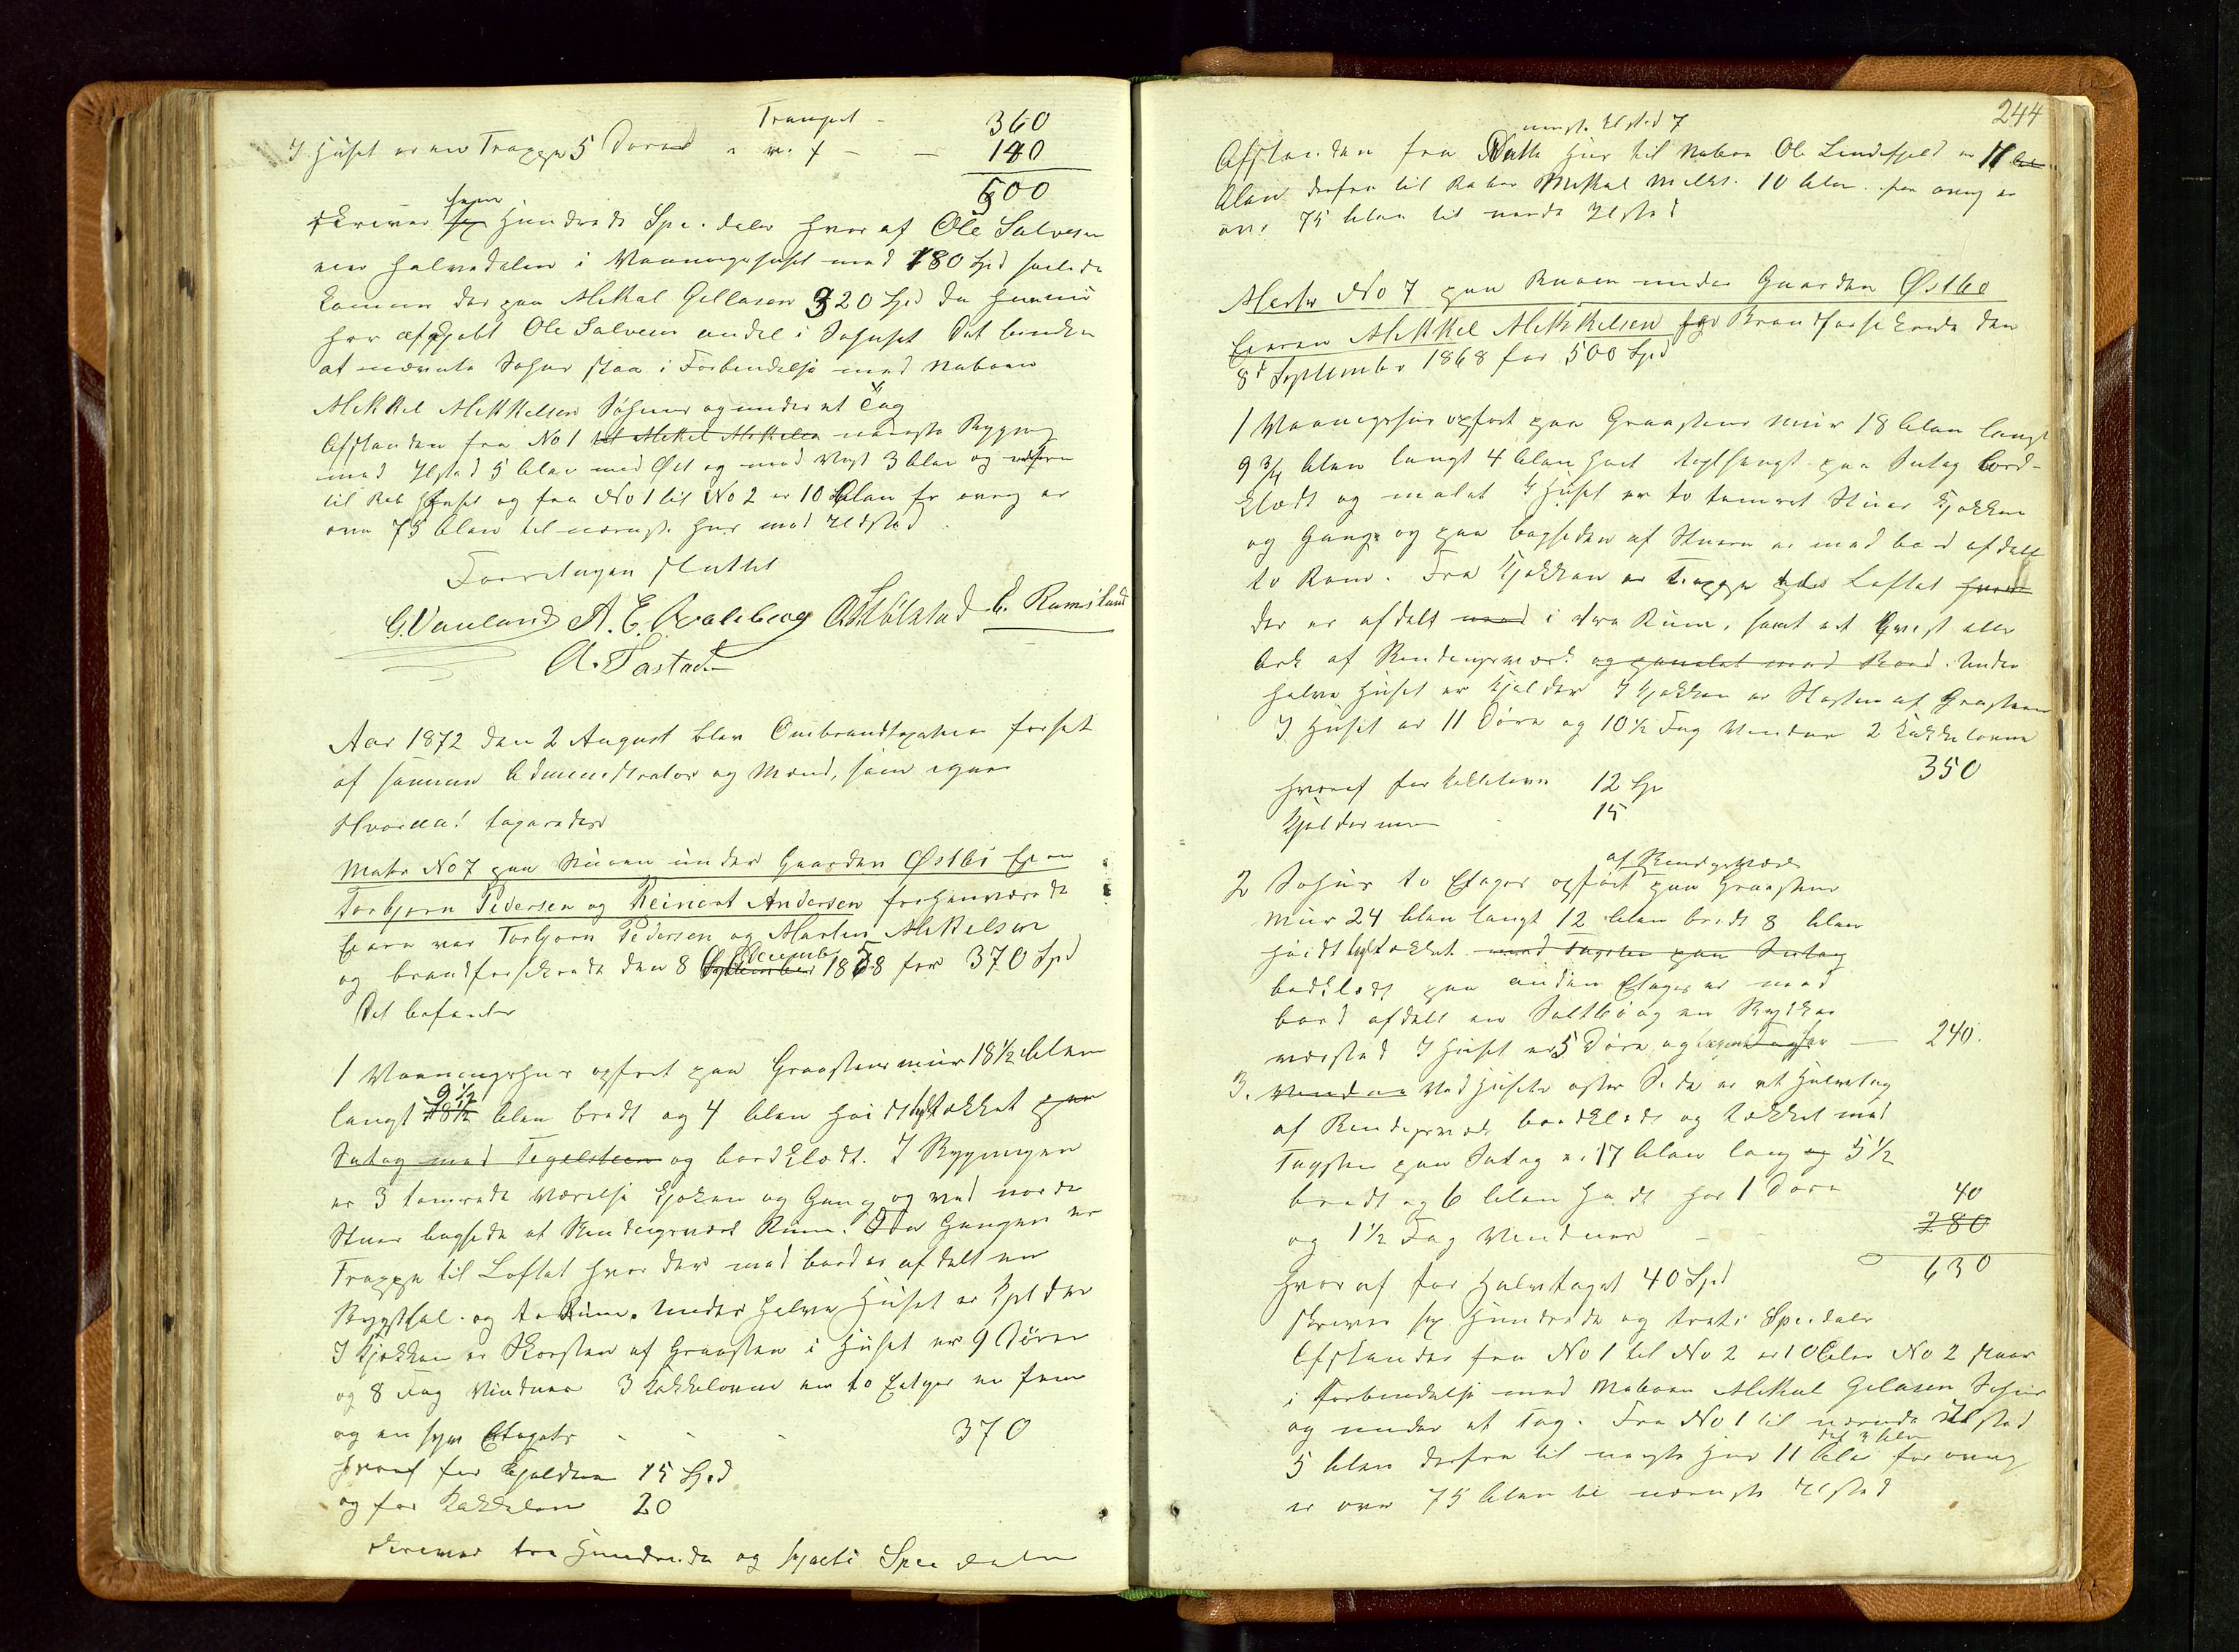 Transport - 360
I Huset er en Trappe 5 Døre - 140
500
skriver fem sex Hundrede Spe. daler hvoraf Ole Salvesen
eier halvedelen i Vaaningshuset med 180 Spd saaledes
kommer der paa Mikal Gellasen 320 Spd da han nu
har afkjøbt Ole Salvesens andel i Søhuset Det bemærkes
at nævnte Søhus staar i Forbindelse med Naboen
Mikkel Mikkelsen Søhuus og under et Tag
Afstanden fra No 1 til Mikkel Mikkelsen næreste Bygning
med Ildsted 5 Alen mod Øst og mod Vest 3 Alen og
til Huset og fra No 1 til No 2 er 10 Alen for øvrig er
over 75 Alen til nærmeste Hus med Ildsted
Forretningen sluttet
G. Vauland A. E. Svaleberg O. Tastad
A. Tastad
Aar 1872 den 2 August blev Ombrandtaxation forsat
af samme Administrator og Mænd, som agter
Hvorda! taxerades
Matr No 7 paa Ruaen under Gaarden Østbø Eieren
Torbjørn Pedersen og Reinert Andersen forhenværende
Eiere var Torbjørn Pedersen og Martin Mikkelsen
og brandforsikrede den 8 September December 1858 for 370 Spd
Det befantes
1 Vaaningshus opført paa Graasteens muur 18 1/2 Alen
langt 9 1/2 18 1/2 Alen bredt og 4 Alen høidt teglstækket paa
Sutag med Tegelsteen og bordklædt. I Bygningen
er 3 tømrede Værelse Kjøken og Gang og ved nordre
Stues bagside et Bindingsværks Rum. Fra Gangen er
Trappe til Loftet hvor der med bord er afdelt en
Bygsal og to Rum. Under halve Huset er Kjelder
I Kjøkken er Skorsten af Graasten i Huset er 9 Døre
og 8 Fag Vinduer 3 Kakkelovne en to Etages en fem
og en fyre Etages - - - 370
hvoraf for Kjelderen 15 Spd
og for Kakkelovne 20
skriver tre Hundrede og sytti Spesdaler
244
nærmeste Ildsted 7
Afstanden fra Hus til Naboe Ole Lindefjeld er 11
Alen derfra til Naboe Mikal Mikkels. 10 Alen. for øvrig er
over 75 Alen til næreste Ildsted
Matr No 7 paa Ruaen under Gaarden Østbø
Eieren Mikkel Mikkelsen for Brandforsikrede den
8d September 1868 for 500 Spd
1 Vaaningshus opført paa Graasteens muur 18 Alen langt
9 3/4 Alen langt 4 Alen høit teglhængt paa Sutag bord-
klædt og malet I Huset er to tømret Stuer Kjøkken
og Gang og paa bagsiden af Stuen er med bord afdelt
to Rum. Fra Kjøkken er Trappe til Loftet hvor
der er afdelt med i tre Rum, samt et Qvist eller
Ark af Bindingsværk og panelet med Bord. Under
halve Huset er Kjelder I Kjøkken er Skorsten af Graasteen
I Huset er 11 Døre og 10 1/2 Fag Vinduer 2 Kakkelovne
350
hvoraf for Kakkelovne 12 Sp
Kjelderen - 15
af Bindingsværk
2 Søhuus to Etager opført paa Graasteens
Muur 24 Alen langt 12 Alen bredt 8 Alen
høidt teglstækket med Tagsten paa Sutag
bordklædt paa anden Etager er med
bord afdelt en Saltbø og en Bødker
værksted I Huset er 5 Døre og - 240.
3. Vinduer Ved Husets østre Side er et Halvtag
af Bindingsværk bordklædt og tækket med
Tagsten paa Sutag er 17 Alen lang og 5 1/2
bredt og 6 Alen høidt har 1 Døre 40
og 1 1/2 Fag Vinduer - - 280
hvoraf for Halvtaget 40 Spd 630
skriver sex Hundrede og treti Spesdaler
Afstanden fra No 1 til No 2 er 10 Alen No 2 staar
i Forbindelse med Naboen Mikkal Gelasen Søhus
og under et Tag. Fra No 1 til nærmeste Ildsted
5 Alen derfra til næreste Hus 11 Alen for øvrig
er over 75 Alen til nærmeste Ildsted